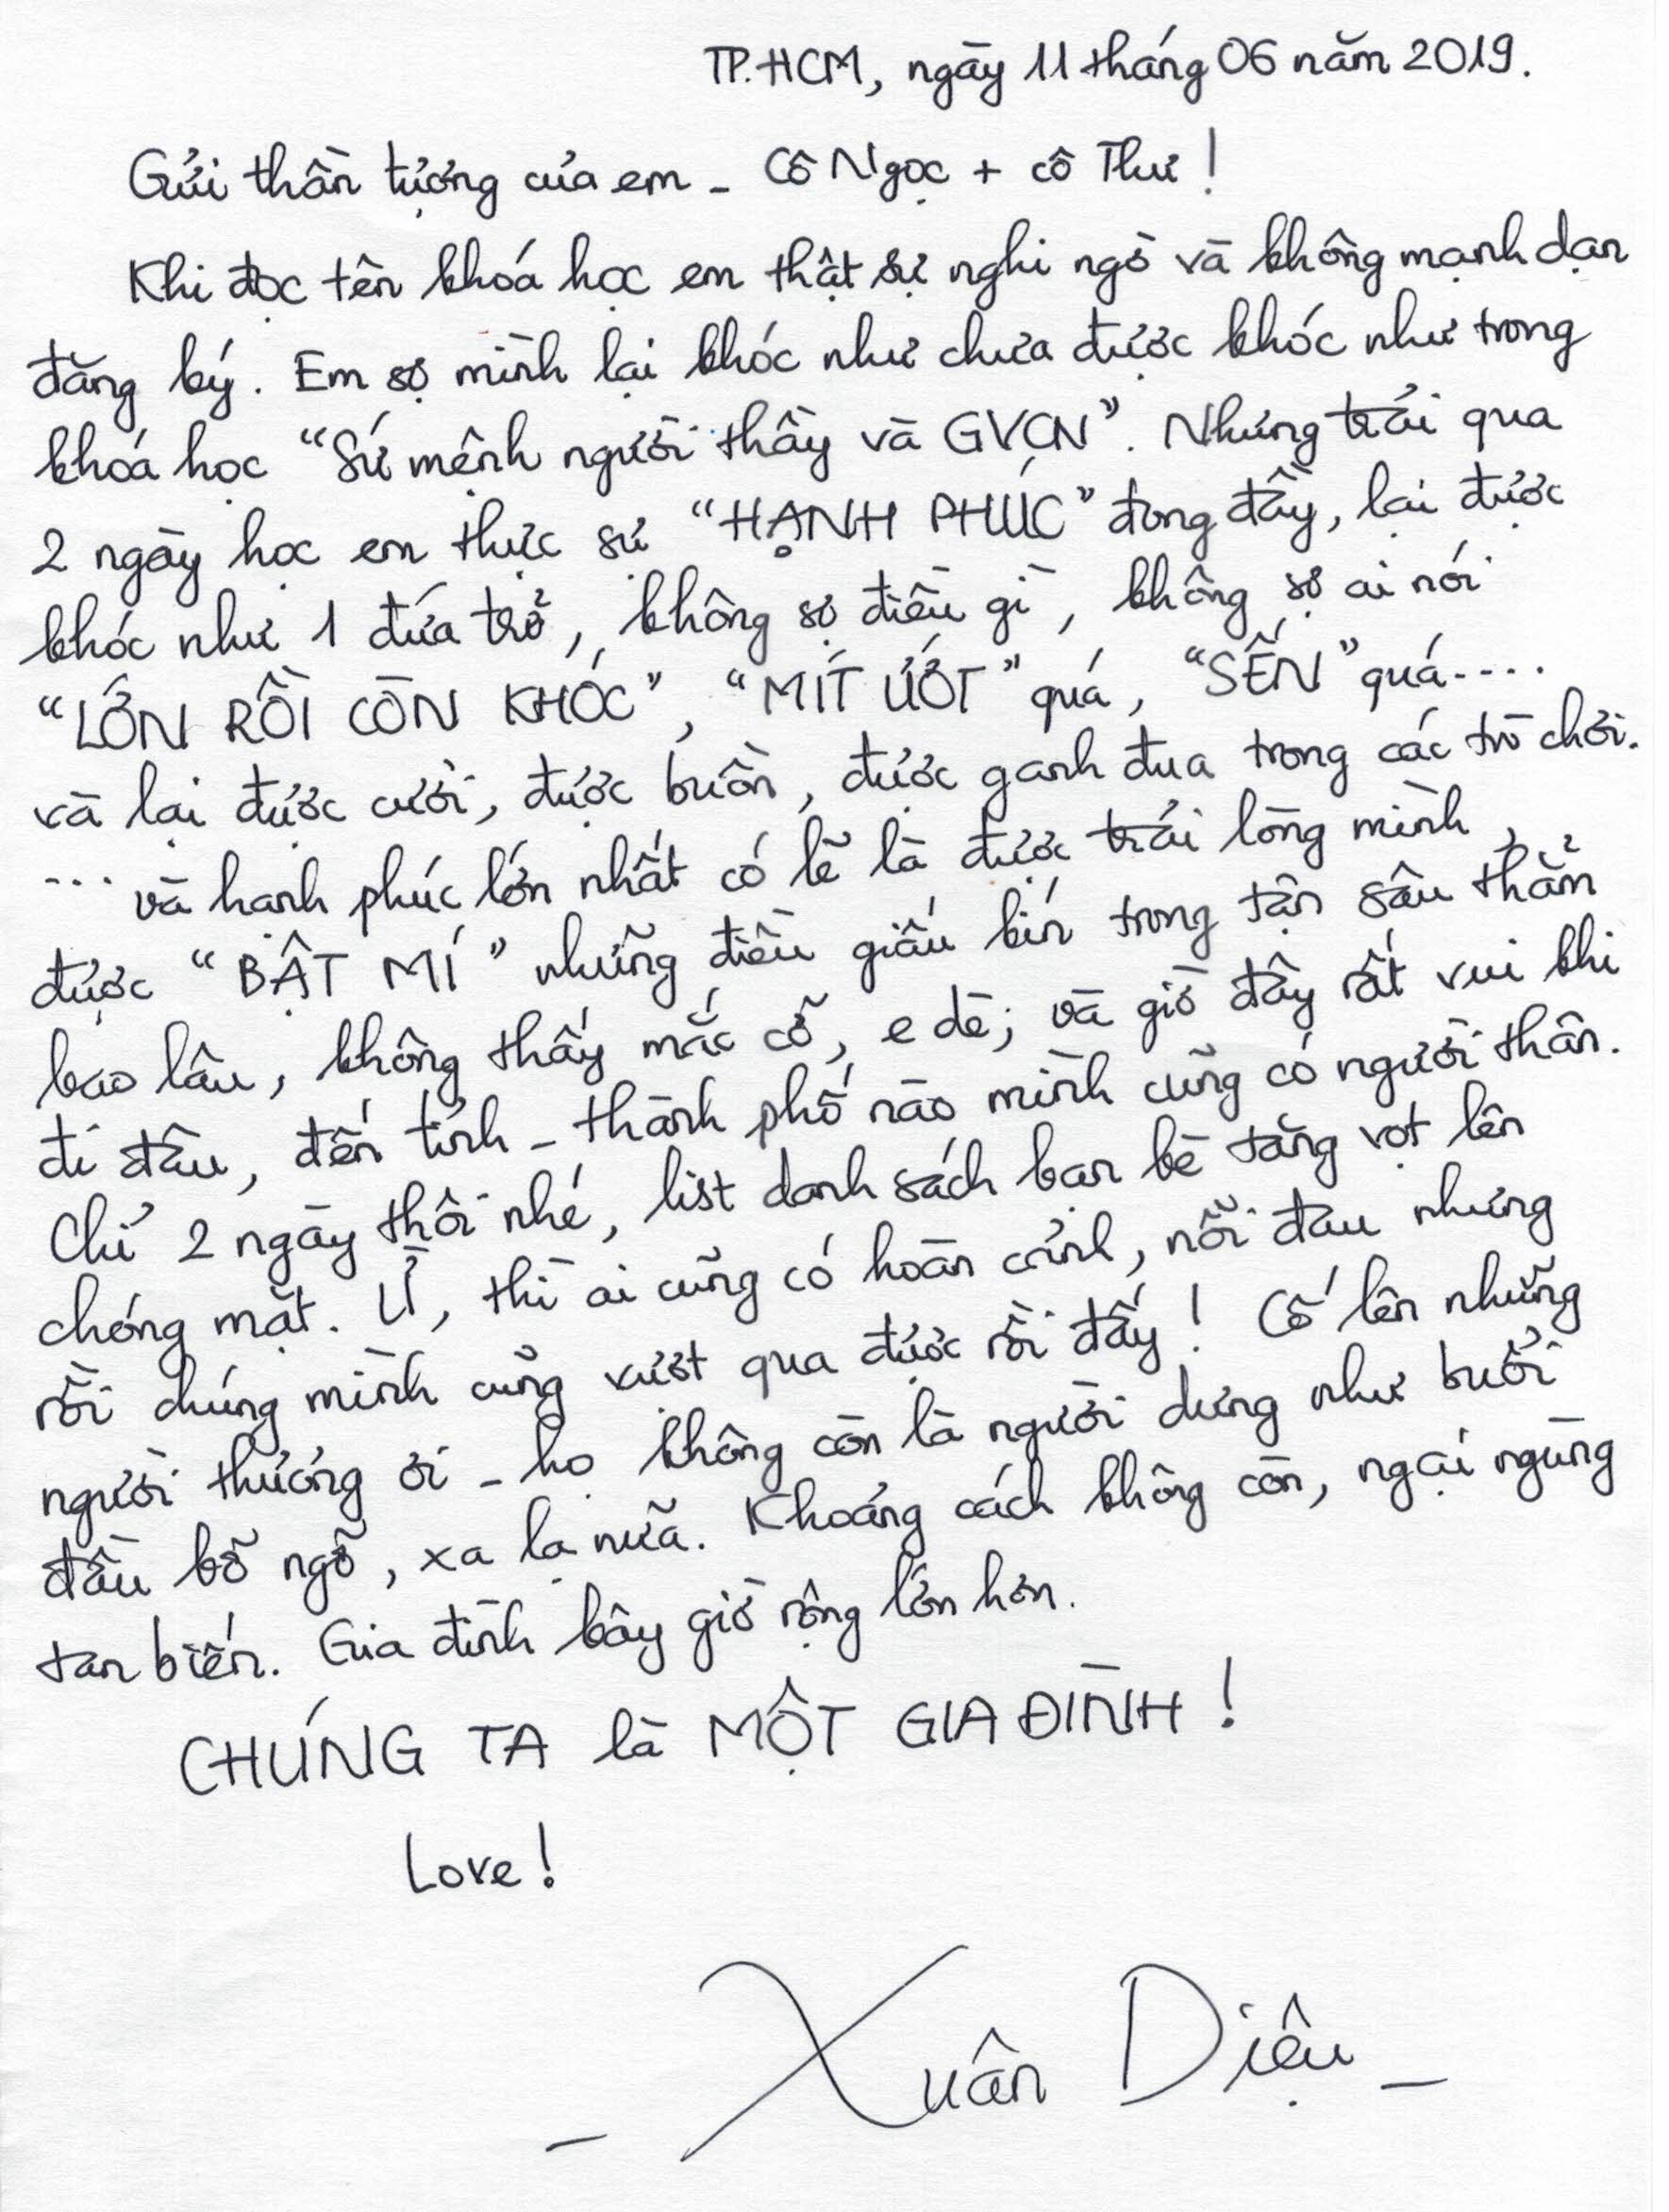 TP.HCM, ngày 11 tháng 06 năm 2019.
Gửi thần tượng của em - Cô Ngọc + cô Thư!
Khi đọc tên khoá học em thật sự nghi ngờ và không mạnh dạn
đăng ký. Em sợ mình lại khóc như chưa được khóc như trong
khoá học "Sứ mệnh người thầy và GVCN". Nhưng trải qua
2 ngày học em thực sự "HẠNH PHÚC" dong đầy, lại được
khóc như 1 đứa trẻ, không sợ điều gì, không sợ ai nói
"LỚN RỒI CÒN KHÓC", "MÍT ƯỚT" quá, "SẾN" quá....
và lại được cười, được buồn, được ganh đua trong các trò chơi.
... và hạnh phúc lớn nhất có lẽ là được trải lòng mình,
được "BẬT MÍ" những điều giấu kín trong tận sâu thẳm
bao lâu, không thấy mắc cỡ, e dè; và giờ đây rất vui khi
đi đâu, đến tỉnh - thành phố nào mình cũng có người thân.
Chỉ 2 ngày thôi nhé, list danh sách bạn bè tăng vọt lên
chóng mặt. Ừ, thì ai cũng có hoàn cảnh, nỗi đau nhưng
rồi chúng mình cũng vượt qua được rồi đấy! Cố lên những
người thương ơi - họ không còn là người dưng như buổi
đầu bỡ ngỡ, xa lạ nữa. Khoảng cách không còn, ngại ngùng
tan biến. Gia đình bây giờ rộng lớn hơn.
CHÚNG TA là MỘT GIA ĐÌNH!
Love!
- Xuân Diệu -